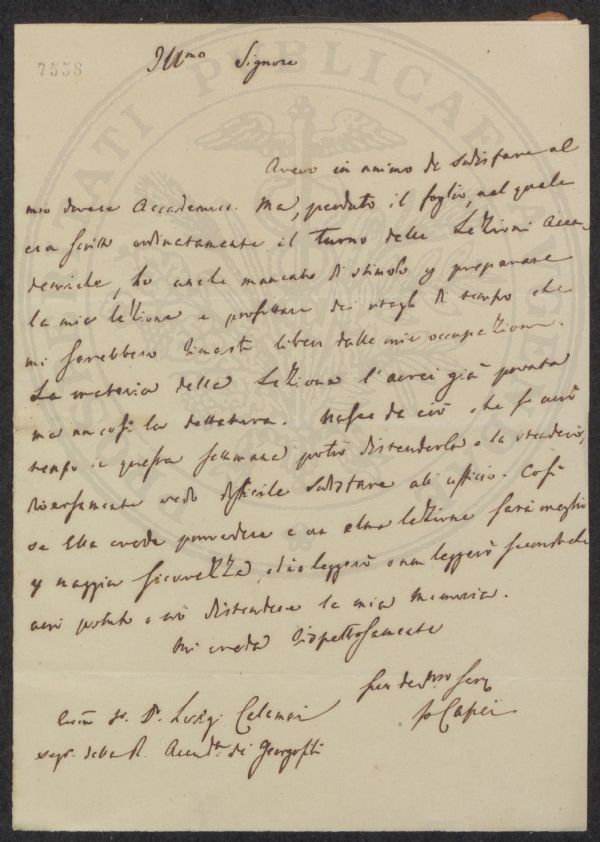 7558
Illmo Signore
Avevo in animo di sodisfare al
mio dovere Accademico. Ma, perduto il foglio, nel quale
era scritto ordinatamente il turno delle Lezioni Acca-
demiche, ho anche mancato di stimolo a preparare
la mia lezione e profittare dei ritagli di tempo che
mi sarebbero rimasti liberi dalle mie occupazioni.
La materia della Lezione l'avrei già pronta
ma non così la dettatura. Nasce da ciò che se avrò
tempo in questa settimana potrò distenderla e la manderò,
diversamente vedo difficile sodisfare all'ufficio. Così
se Ella crede provvedere a un altra lezione sarà meglio
maggior sicurezza, ed io leggerò o non leggerò secondochè
avrò potuto o nò distendere la mia Memoria.
Mi creda rispettosamente
Suo devmo serv
P Capei
Sr. Dr. Luigi Calamai
segr. della R. Accada. dei Georgofili